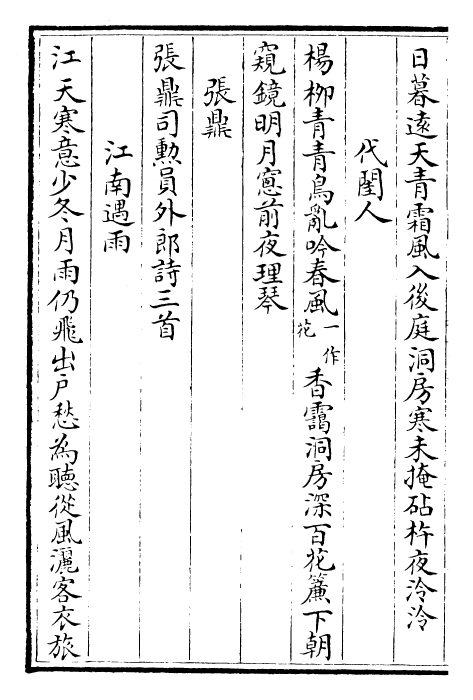 日暮遠天青霜風入後庭洞房寒未掩砧杵夜泠泠
代閨人
楊柳青青鳥亂吟春風一作花香靄洞房深百花簾下朝
窺鏡明月窓前夜理琴
張鼎
張鼎司勲員外郎詩三首
江南遇雨
江天寒意少冬月雨仍飛出戸愁為聽從風灑客衣旅